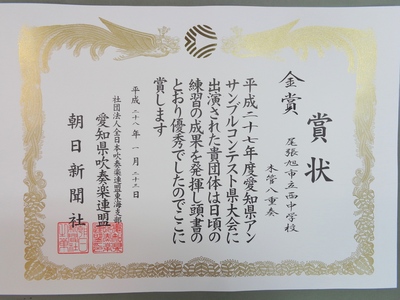 賞状
金賞
尾張旭市立西中学校
木管八重奏
平成二十七年度愛知県アン
サンブルコンテスト県大会に
出演された貴団体は日頃の
練習の成果を発揮し頭書の
とおり優秀でしたのでここに
賞します
平成二十八年一月二十三日
社団法人全日本吹奏楽連盟東海支部
愛知県吹奏楽連盟
朝日新聞社